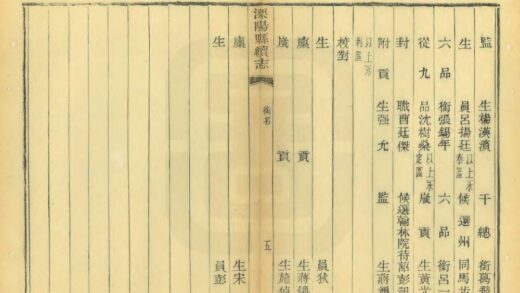 監 生楊漢 千總 銜葛
生 員呂揚廷 以上永泰區 候選州 同馬
六品 銜張錫年 六品 銜呂一
從九 品沈樹燊 以上永定區 歲貢 生黃
封 職曹廷傑 候選翰林院待詔彭
附貢 生强允 監 生蔣
以上永區
校對
生 員狄
廩 貢 生蔣
歲 貢 生施
溧陽縣續志 銜名 五
廩 生宋
生 員彭